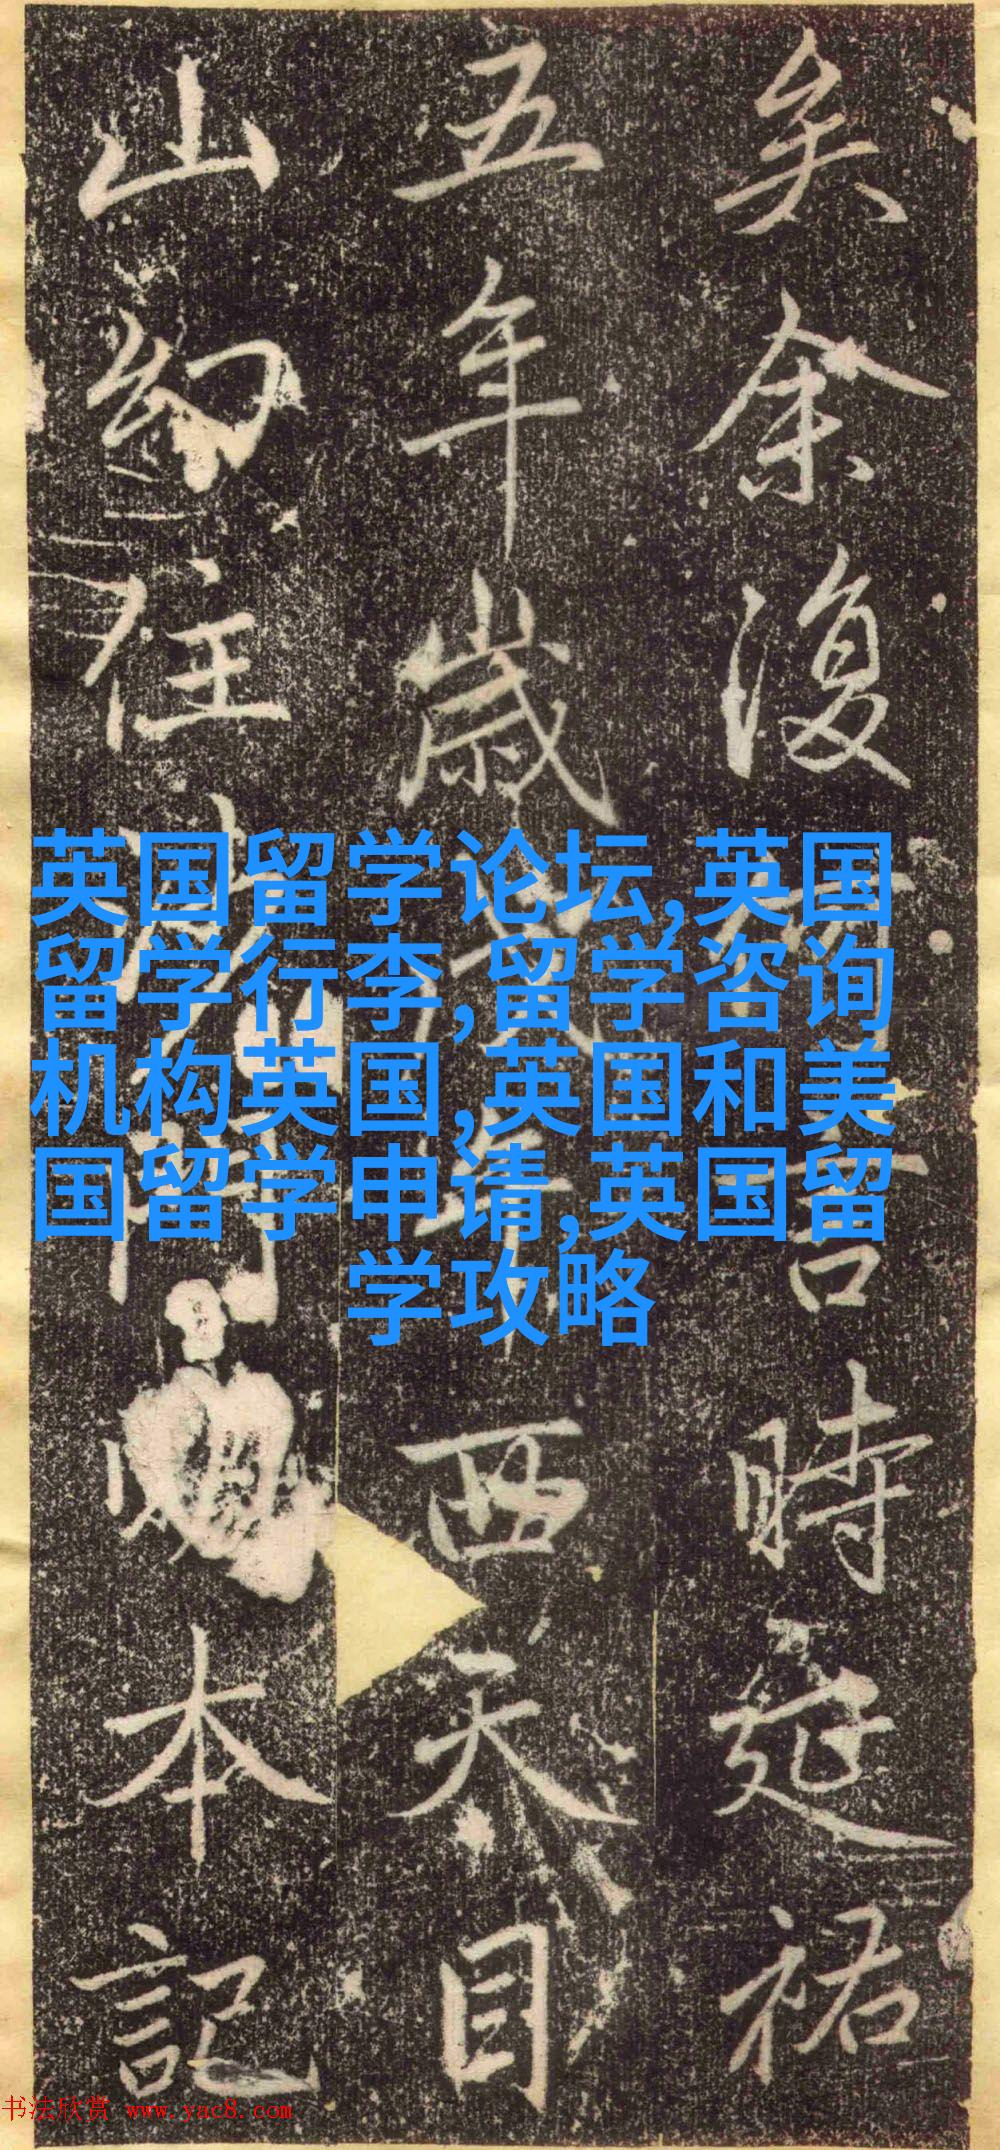 矣余復言時延祐
五年歲西天目
山幻住本記
英国留学论坛,英国
留学行李,留学咨询
机构英国,英国和美
国留学申请,英国留
学攻略
书法欣赏 www.yac8.com